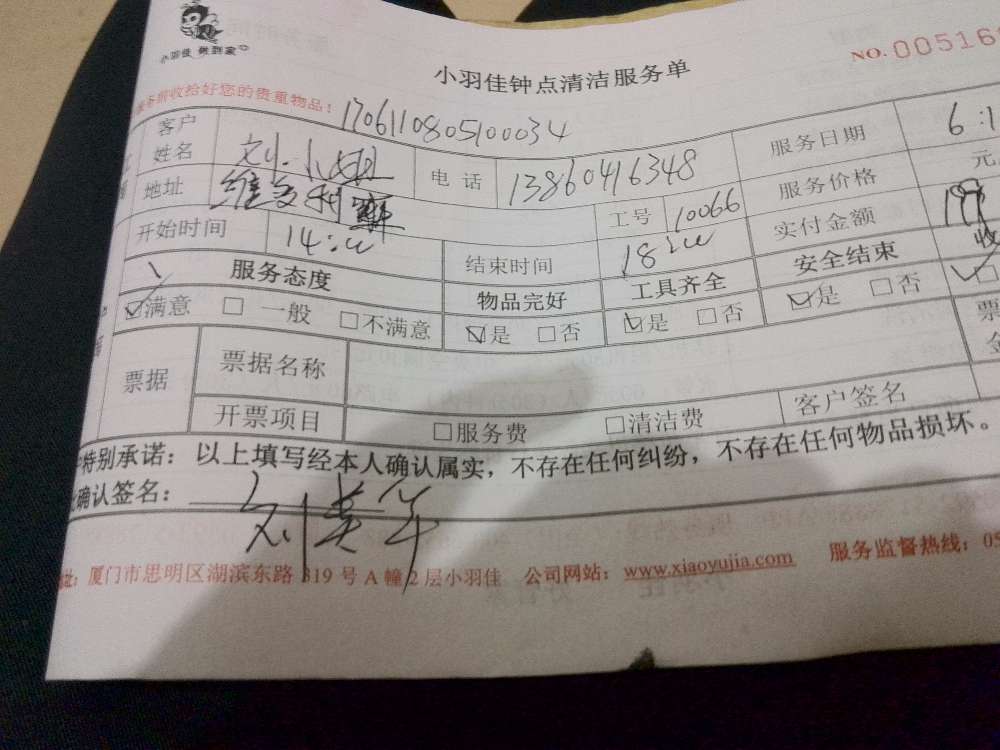 小羽佳 做到家
小羽佳钟点清洁服务单
NO. 00516
服务前收给好您的贵重物品: 1706110805100034
客户姓名 刘小姐 电话 13860416348 服务日期 6:1
地址 维多利 工号 10066 服务价格 元
开始时间 14:00 结束时间 18:00 实付金额
服务态度 物品完好 工具齐全 安全结束 收
☑满意 □一般 □不满意 ☑是 □否 ☑是 □否 ☑是 □否
票据 票据名称 票
开票项目 □服务费 □清洁费 客户签名
特别承诺: 以上填写经本人确认属实,不存在任何纠纷,不存在任何物品损坏。
确认签名: 刘美华
址: 厦门市思明区湖滨东路 319 号 A 幢 2 层小羽佳 公司网站: www.xiaoyujia.com 服务监督热线: 05